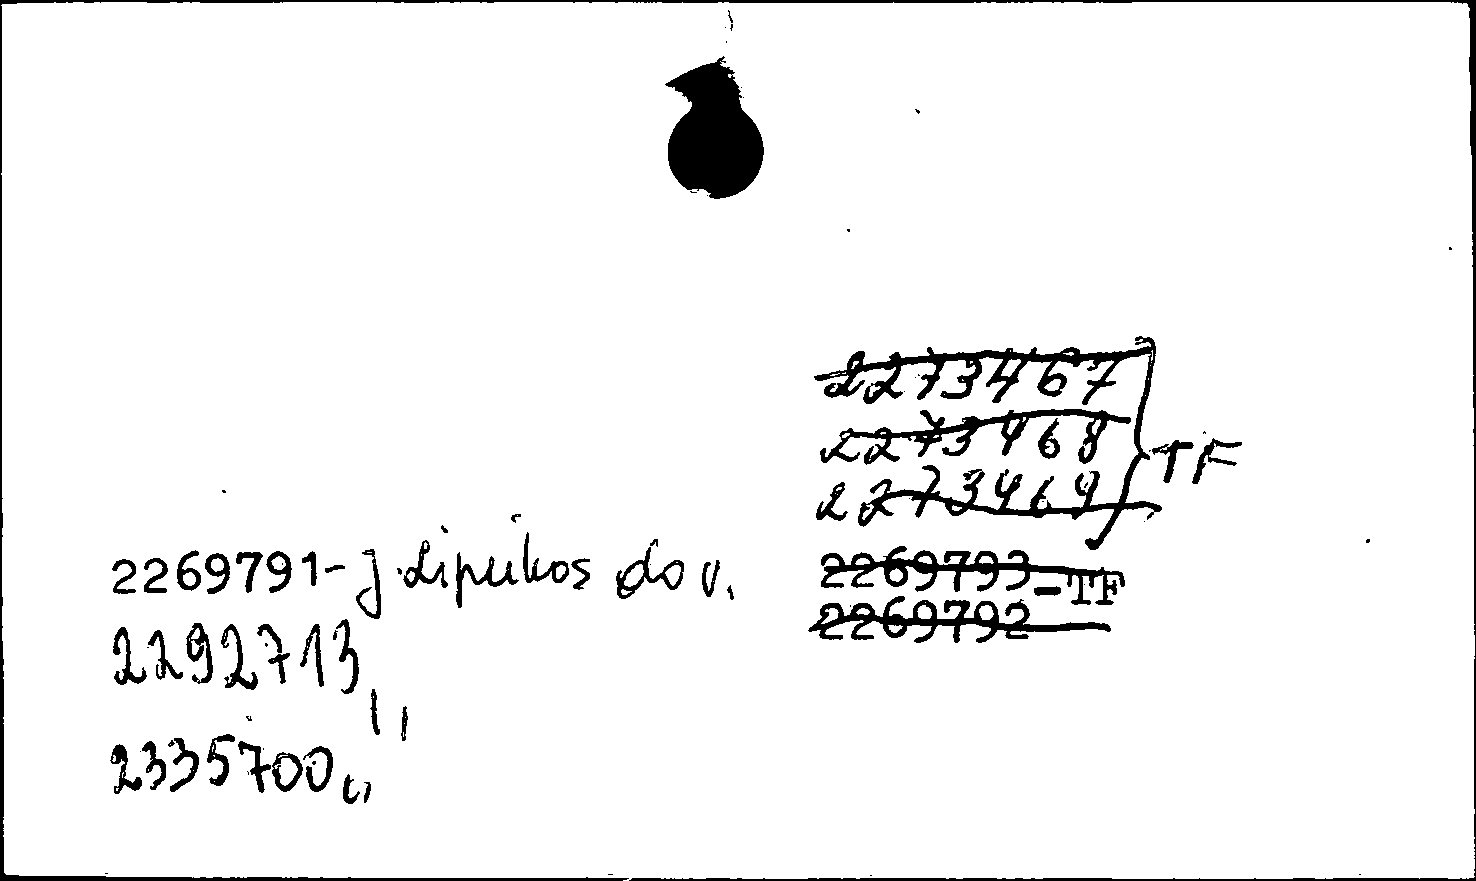 2273467
2273468 TF
2273469
2269793 - TF
2269792
2269791 - J. Lipeikos do v.
2292713 "
2335700 "